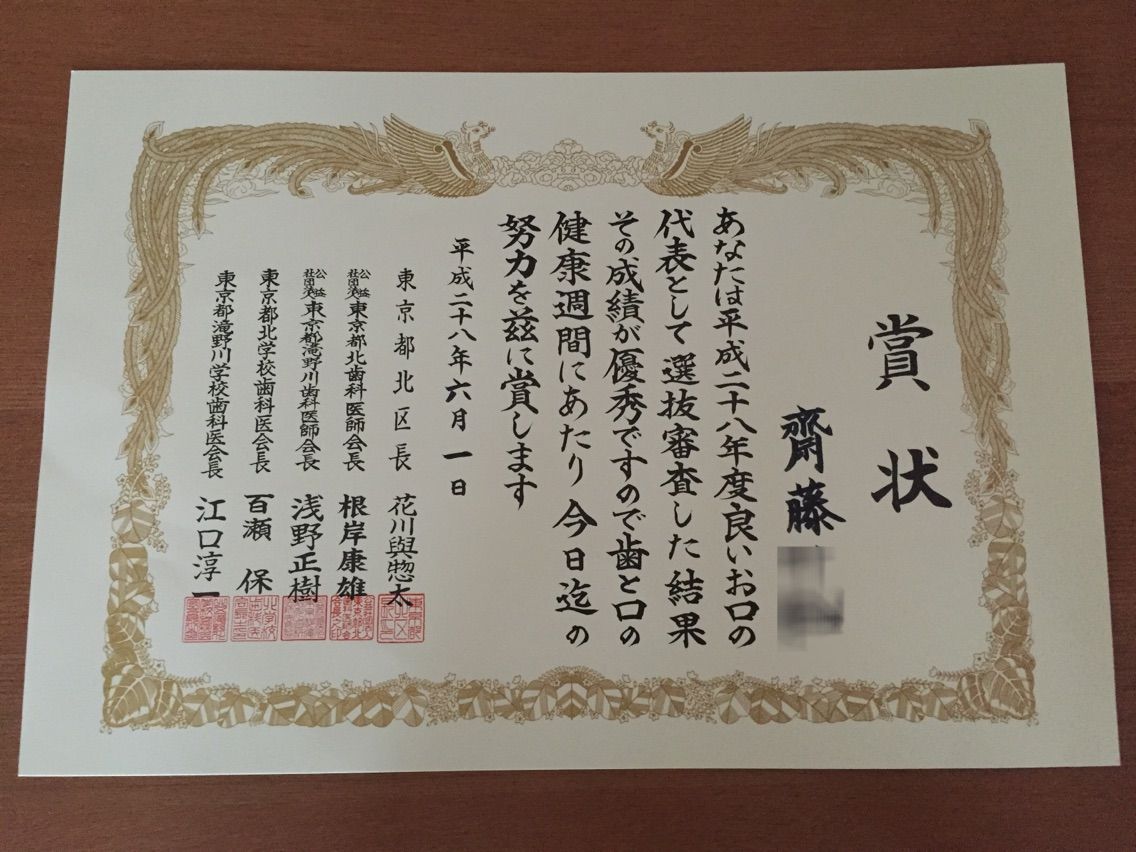 賞状
齋藤
あなたは平成二十八年度良いお口の
代表として選抜審査した結果
その成績が優秀ですので歯と口の
健康週間にあたり今日迄の
努力を茲に賞します
平成二十八年六月一日
東京都北区長 花川與惣太
公益社団法人東京都北歯科医師会長 根岸康雄
公益社団法人東京都滝野川歯科医師会長 浅野正樹
東京都北学校歯科医会長 百瀬保
東京都滝野川学校歯科医会長 江口淳一